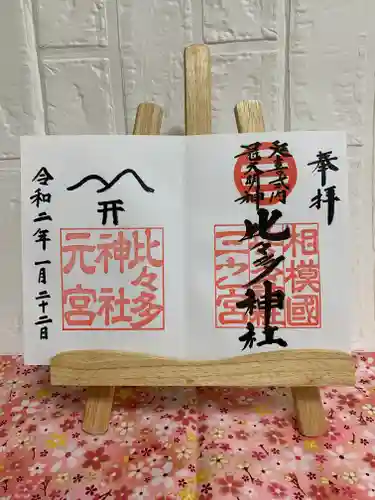 奉拝
相模國
三之宮
延喜式内
冠大明神
比々多神社
比々多
神社
元宮
令和二年一月二十二日